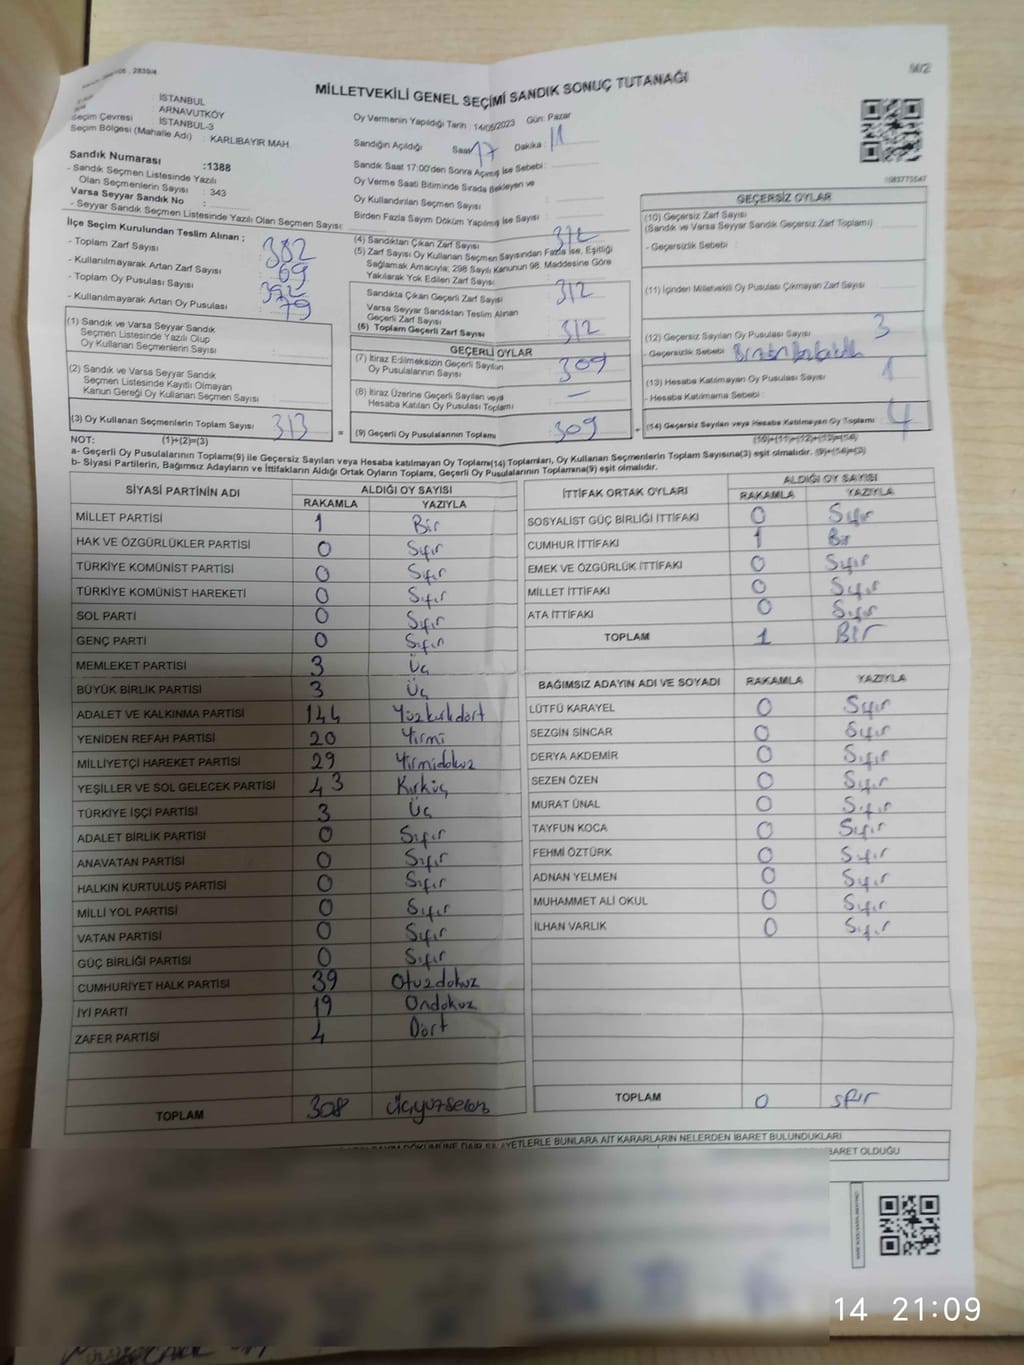 MİLLETVEKİLİ GENEL SEÇİMİ SANDIK SONUÇ TUTANAĞI
M/2
İSTANBUL
ARNAVUTKÖY
Seçim Çevresi : İSTANBUL-3
Seçim Bölgesi (Mahalle Adı) : KARLIBAYIR MAH.
Sandık Numarası :1388
- Sandık Seçmen Listesinde Yazılı
Olan Seçmenlerin Sayısı : 343
Varsa Seyyar Sandık No :
- Seyyar Sandık Seçmen Listesinde Yazılı Olan Seçmen Sayısı:
Oy Vermenin Yapıldığı Tarih : 14/05/2023 Gün: Pazar
Sandığın Açıldığı Saat 17 Dakika : 11
Sandık Saat 17:00'den Sonra Açılmış İse Sebebi :
Oy Verme Saati Bitiminde Sırada Bekleyen ve
Oy Kullandırılan Seçmen Sayısı :
Birden Fazla Sayım Döküm Yapılmış İse Sayısı :
İlçe Seçim Kurulundan Teslim Alınan ;
- Toplam Zarf Sayısı : 382
- Kullanılmayarak Artan Zarf Sayısı : 69
- Toplam Oy Pusulası Sayısı : 392
- Kullanılmayarak Artan Oy Pusulası : 79
(1) Sandık ve Varsa Seyyar Sandık
Seçmen Listesinde Yazılı Olup
Oy Kullanan Seçmenlerin Sayısı :
(2) Sandık ve Varsa Seyyar Sandık
Seçmen Listesinde Kayıtlı Olmayan
Kanun Gereği Oy Kullanan Seçmen Sayısı :
(3) Oy Kullanan Seçmenlerin Toplam Sayısı : 313
(4) Sandıktan Çıkan Zarf Sayısı : 312
(5) Zarf Sayısı Oy Kullanan Seçmen Sayısından Fazla İse, Eşitliği
Sağlamak Amacıyla; 298 Sayılı Kanunun 98. Maddesine Göre
Yakılarak Yok Edilen Zarf Sayısı :
Sandıkta Çıkan Geçerli Zarf Sayısı : 312
Varsa Seyyar Sandıktan Teslim Alınan
Geçerli Zarf Sayısı :
(6) Toplam Geçerli Zarf Sayısı : 312
GEÇERLİ OYLAR
(7) İtiraz Edilmeksizin Geçerli Sayılan
Oy Pusulalarının Sayısı : 309
(8) İtiraz Üzerine Geçerli Sayılan veya
Hesaba Katılan Oy Pusulası Toplamı : —
(9) Geçerli Oy Pusulalarının Toplamı : 309
GEÇERSİZ OYLAR
(10) Geçersiz Zarf Sayısı
(Sandık ve Varsa Seyyar Sandık Geçersiz Zarf Toplamı) :
- Geçersizlik Sebebi :
(11) İçinden Milletvekili Oy Pusulası Çıkmayan Zarf Sayısı :
(12) Geçersiz Sayılan Oy Pusulası Sayısı : 3
- Geçersizlik Sebebi :
(13) Hesaba Katılmayan Oy Pusulası Sayısı : 1
- Hesaba Katılmama Sebebi :
(14) Geçersiz Sayılan veya Hesaba Katılmayan Oy Toplamı : 4
NOT: (1)+(2)=(3)
(10)+(11)+(12)+(13)=(14)
a- Geçerli Oy Pusulalarının Toplamı(9) ile Geçersiz Sayılan veya Hesaba katılmayan Oy Toplamı(14) Toplamları, Oy Kullanan Seçmenlerin Toplam Sayısına(3) eşit olmalıdır. (9)+(14)=(3)
b- Siyasi Partilerin, Bağımsız Adayların ve İttifakların Aldığı Ortak Oyların Toplamı, Geçerli Oy Pusulalarının Toplamına(9) eşit olmalıdır.
SİYASİ PARTİNİN ADI ALDIĞI OY SAYISI
RAKAMLA YAZIYLA
MİLLET PARTİSİ 1 Bir
HAK VE ÖZGÜRLÜKLER PARTİSİ 0 Sıfır
TÜRKİYE KOMÜNİST PARTİSİ 0 Sıfır
TÜRKİYE KOMÜNİST HAREKETİ 0 Sıfır
SOL PARTİ 0 Sıfır
GENÇ PARTİ 0 Sıfır
MEMLEKET PARTİSİ 3 Üç
BÜYÜK BİRLİK PARTİSİ 3 Üç
ADALET VE KALKINMA PARTİSİ 144 Yüzkırkdört
YENİDEN REFAH PARTİSİ 20 Yirmi
MİLLİYETÇİ HAREKET PARTİSİ 29 Yirmidokuz
YEŞİLLER VE SOL GELECEK PARTİSİ 43 Kırküç
TÜRKİYE İŞÇİ PARTİSİ 3 Üç
ADALET BİRLİK PARTİSİ 0 Sıfır
ANAVATAN PARTİSİ 0 Sıfır
HALKIN KURTULUŞ PARTİSİ 0 Sıfır
MİLLİ YOL PARTİSİ 0 Sıfır
VATAN PARTİSİ 0 Sıfır
GÜÇ BİRLİĞİ PARTİSİ 0 Sıfır
CUMHURİYET HALK PARTİSİ 39 Otuzdokuz
İYİ PARTİ 19 Ondokuz
ZAFER PARTİSİ 4 Dört
TOPLAM 308 Üçyüzsekiz
İTTİFAK ORTAK OYLARI ALDIĞI OY SAYISI
RAKAMLA YAZIYLA
SOSYALİST GÜÇ BİRLİĞİ İTTİFAKI 0 Sıfır
CUMHUR İTTİFAKI 1 Bir
EMEK VE ÖZGÜRLÜK İTTİFAKI 0 Sıfır
MİLLET İTTİFAKI 0 Sıfır
ATA İTTİFAKI 0 Sıfır
TOPLAM 1 Bir
BAĞIMSIZ ADAYIN ADI VE SOYADI RAKAMLA YAZIYLA
LÜTFÜ KARAYEL 0 Sıfır
SEZGİN SİNCAR 0 Sıfır
DERYA AKDEMİR 0 Sıfır
SEZEN ÖZEN 0 Sıfır
MURAT ÜNAL 0 Sıfır
TAYFUN KOCA 0 Sıfır
FEHMİ ÖZTÜRK 0 Sıfır
ADNAN YELMEN 0 Sıfır
MUHAMMET ALİ OKUL 0 Sıfır
İLHAN VARLIK 0 Sıfır
TOPLAM 0 Sıfır
AİT KARARLARIN NELERDEN İBARET BULUNDUKLARI
İBARET OLDUĞU
14 21:09